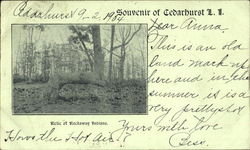 Cedarhurst 9-2 1904
Souvenir of Cedarhurst L. I.
Dear Anna -
This is an old
land mark up
here and in the
summer is is a
very pretty spot
Relic of Rockaway Indians.
Yours with love
Bess.
Hows the Hot Air?